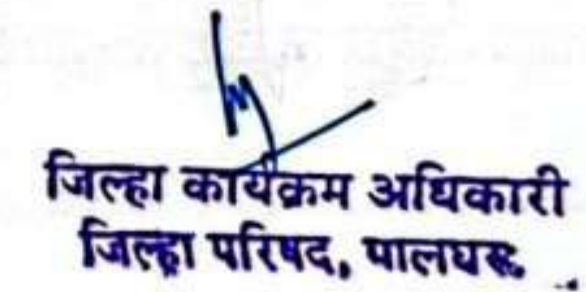 जिल्हा कार्यक्रम अधिकारी
जिल्हा परिषद, पालघर.